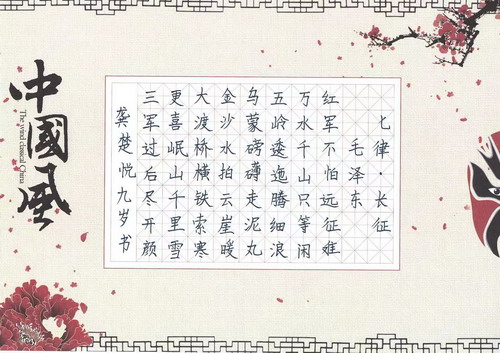 七律·长征
毛泽东
红军不怕远征难
万水千山只等闲
五岭逶迤腾细浪
乌蒙磅礴走泥丸
金沙水拍云崖暖
大渡桥横铁索寒
更喜岷山千里雪
三军过后尽开颜
龚楚悦九岁书
中國風
The wind classical China